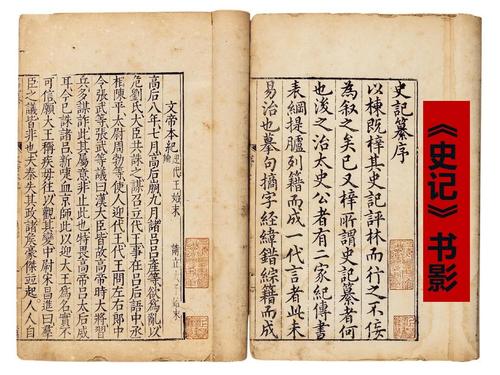 《史记》书影
史記纂序
以棟既梓其史記評林而行之不佞
為叙之矣已又梓所謂史記纂者何
也後之治太史公者有二家紀傳書
表綱提臚列籍而成一代言者此未
易治也摹句摘字經緯錯綜籍而成
文帝本紀
迎代王始末
請立
始末
高后八年七月高后崩九月諸呂呂產等欲為亂以
危劉氏大臣共誅之謀召立代王事在呂后語中丞
相陳平太尉周勃等使人迎代王代王問左右郎中
令張武等張武等議曰漢大臣皆故高帝時大將習
兵多謀詐此其屬意非止此也特畏高帝呂太后威
耳今已誅諸呂新啑血京師此以迎大王為名實不
可信願大王稱疾毋往以觀其變中尉宋昌進曰羣
臣之議皆非也夫秦失其政諸侯豪傑並起人人自